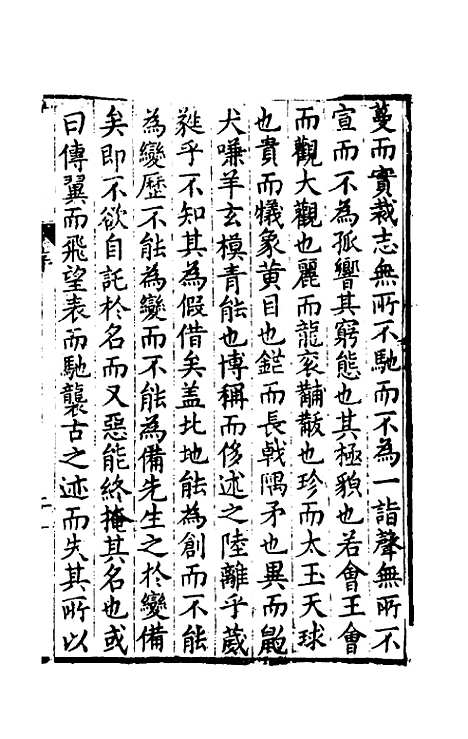 蔓而實裁志無所不馳而不為一詣聲無所不
宣而不為孤響其窮態也其極貌也若會王會
而觀大觀也麗而龍衮黼黻也珍而太玉天球
也貴而犧象黃目也鉅而長戟隅矛也異而鼮
犬嗛羊玄模青能也博稱而侈述之陸離乎葳
蕤乎不知其為假借矣蓋北地能為創而不能
為變歷不能為變而不能為備先生之於變備
矣即不欲自託於名而又惡能終掩其名也或
曰傳翼而飛望表而馳襲古之迹而失其所以
序